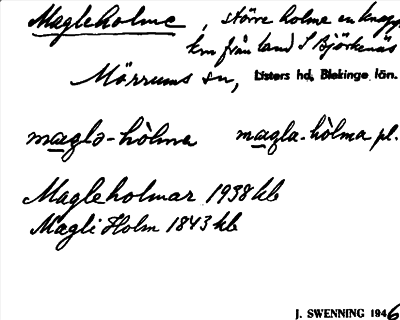 Magleholme, större holme en knapp
km från land S Björkenäs
Mörrums sn, Listers hd, Blekinge län.
maglə-hòlma magla-hòlma pl.
Magleholmar 1938 kb
Magli Holm 1843 kb
J. SWENNING 1946